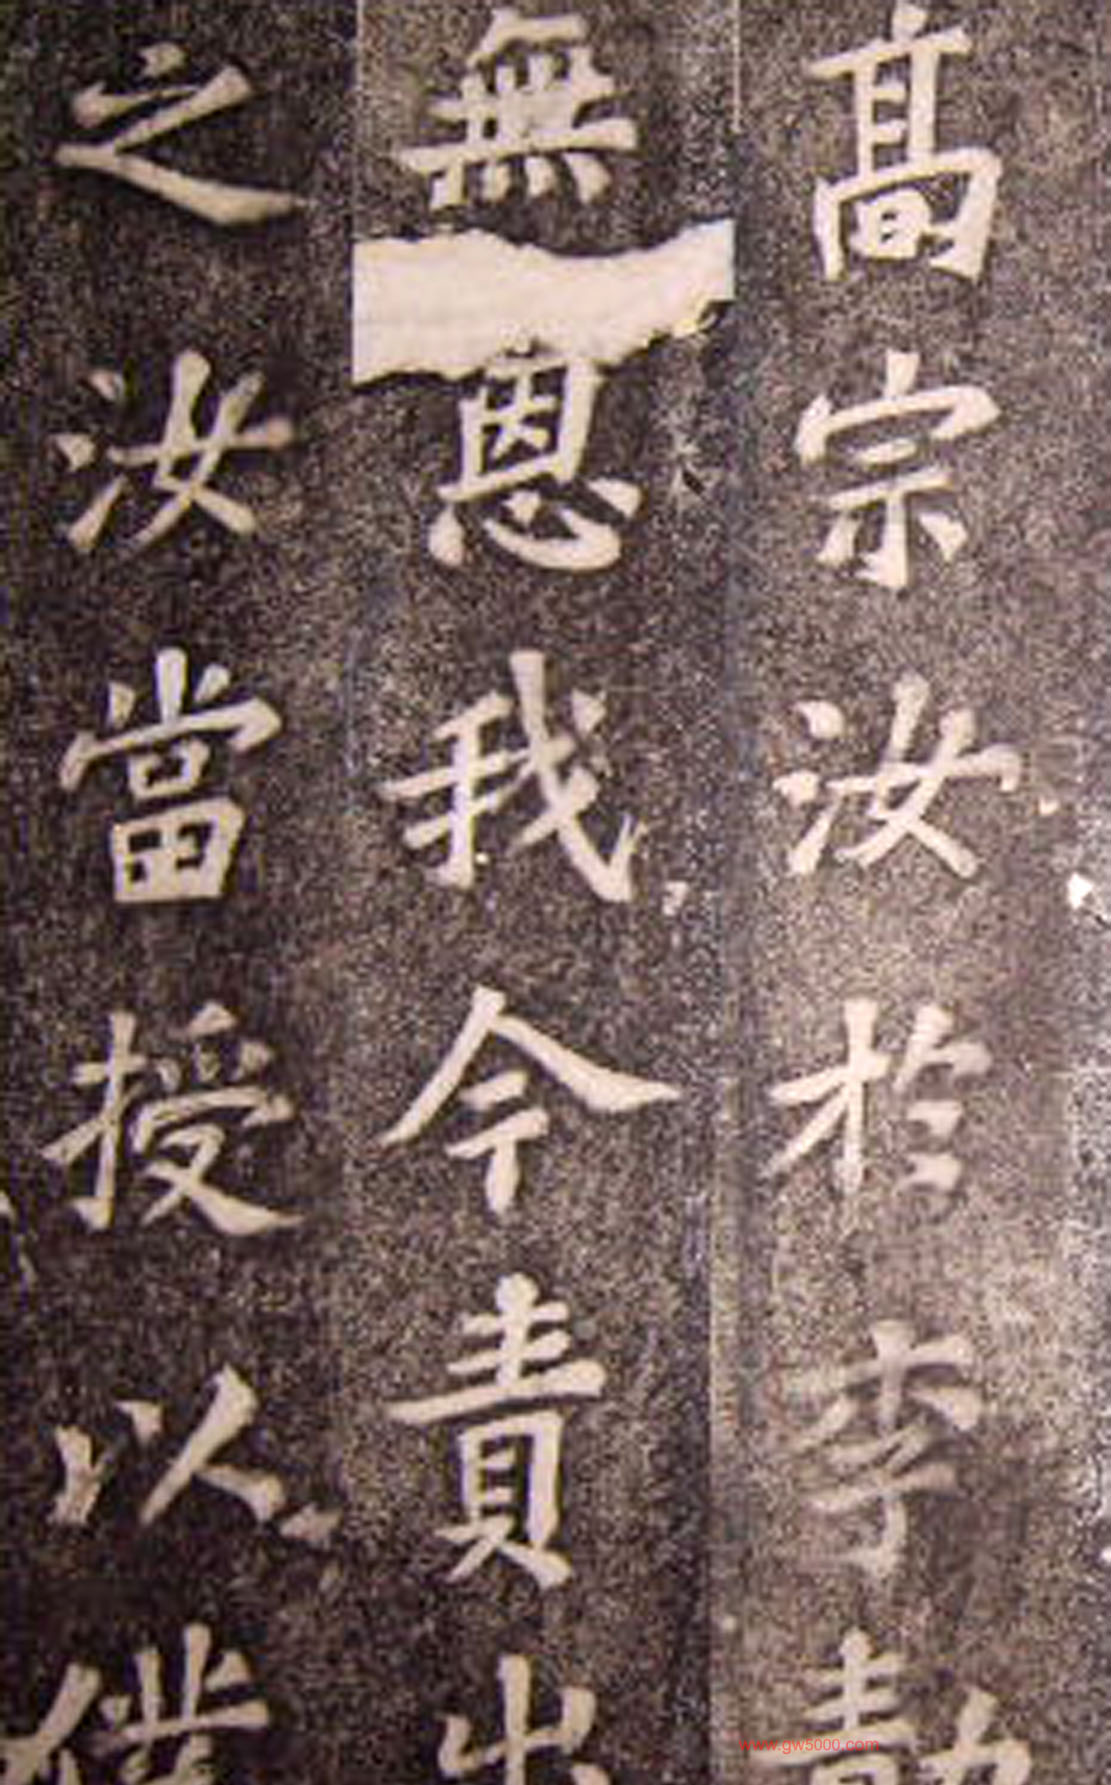 高宗汝於李勣
無恩我今責出
之汝當授以僕
www.gw5000.com